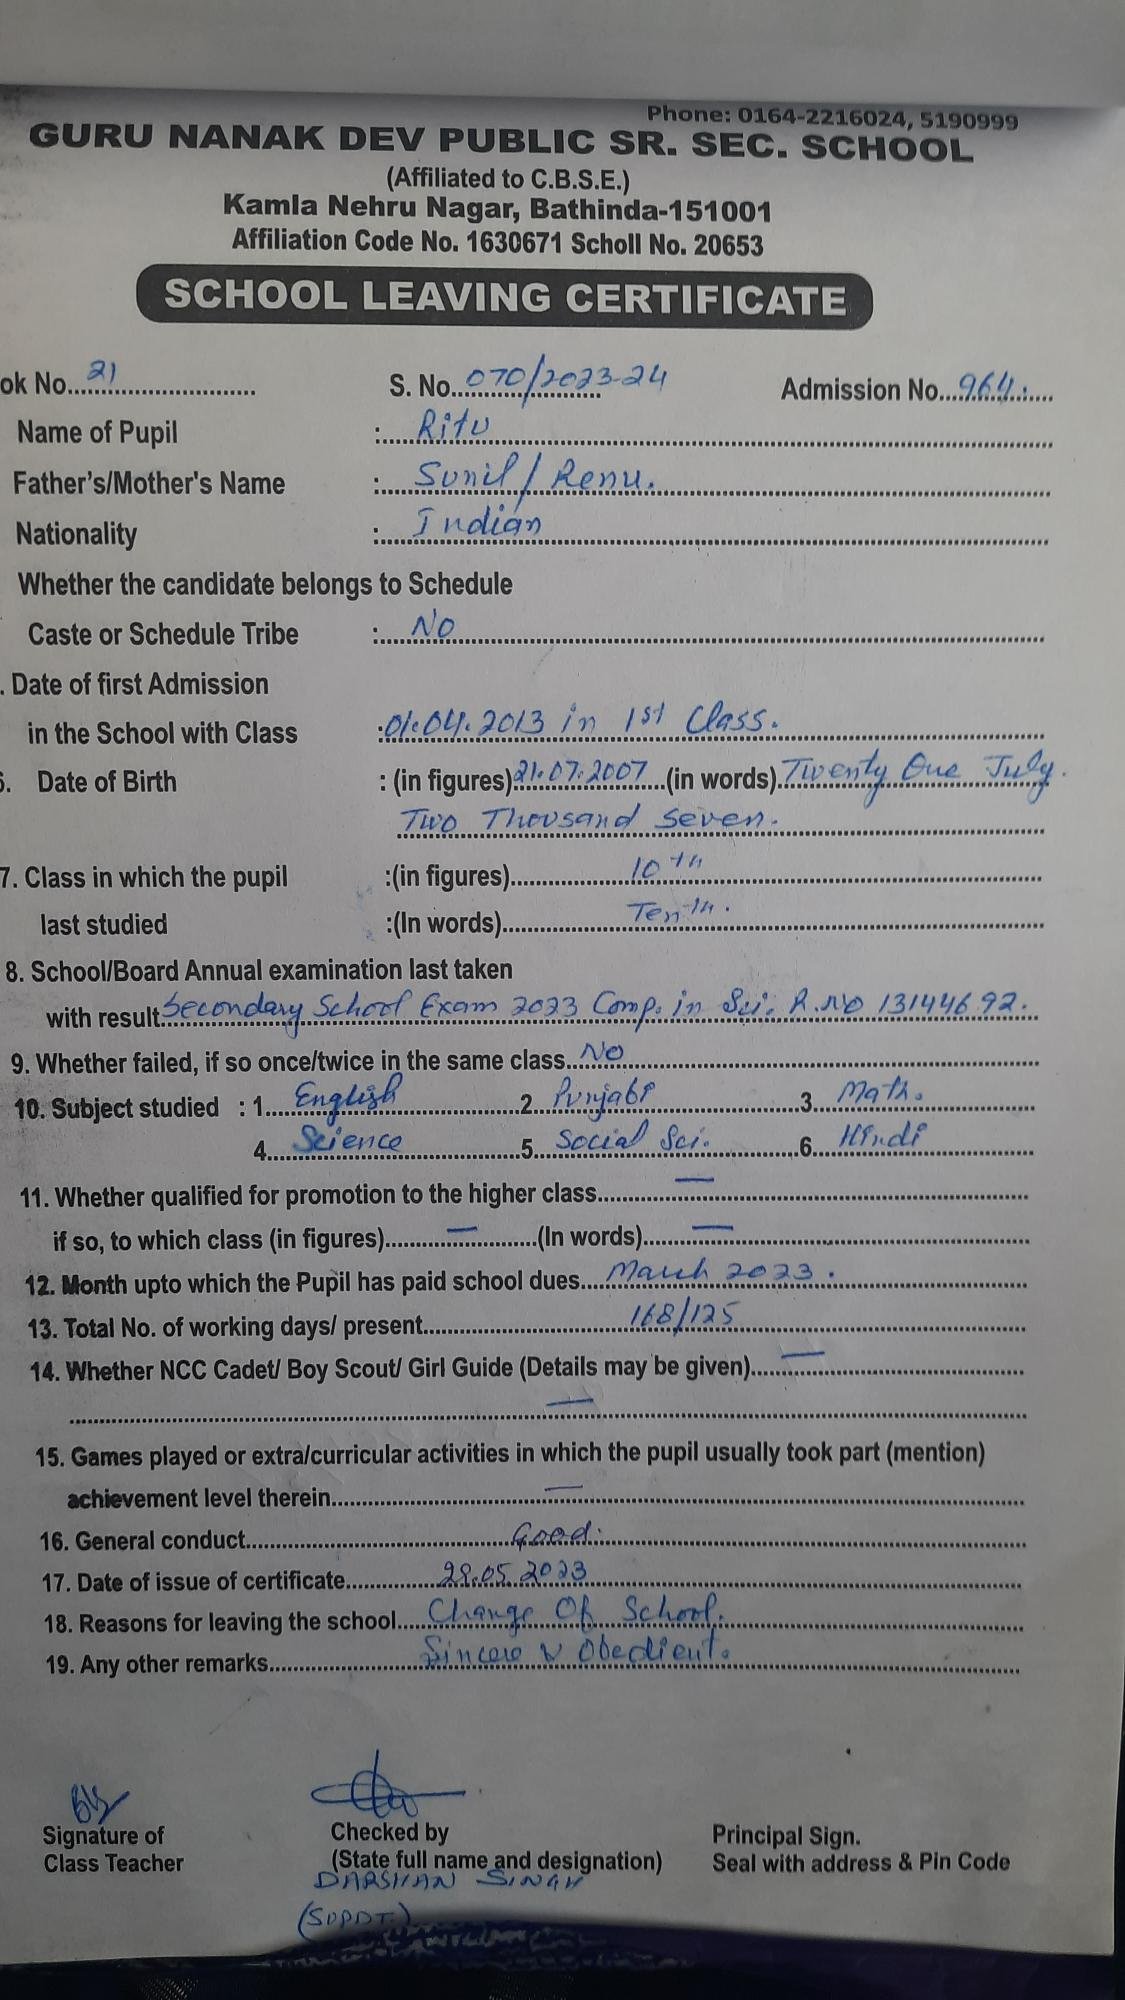 Phone: 0164-2216024, 5190999
GURU NANAK DEV PUBLIC SR. SEC. SCHOOL
(Affiliated to C.B.S.E.)
Kamla Nehru Nagar, Bathinda-151001
Affiliation Code No. 1630671 Scholl No. 20653
SCHOOL LEAVING CERTIFICATE
ok No. 21 S. No. 070/2023-24 Admission No. 964.
Name of Pupil : Ritu
Father's/Mother's Name : Sunil / Renu.
Nationality : Indian
Whether the candidate belongs to Schedule
Caste or Schedule Tribe : NO
. Date of first Admission
in the School with Class : 01.04.2013 in 1st Class.
6. Date of Birth : (in figures) 21.07.2007 (in words) Twenty One July.
Two Thousand Seven.
7. Class in which the pupil :(in figures) 10th
last studied :(In words) Tenth.
8. School/Board Annual examination last taken
with result Secondary School Exam 2023 Comp. in Sci. R.No 13144692.
9. Whether failed, if so once/twice in the same class. No
10. Subject studied : 1. English 2. Punjabi 3. Math.
4. Science 5. Social Sci. 6. Hindi
11. Whether qualified for promotion to the higher class —
if so, to which class (in figures) — (In words) —
12. Month upto which the Pupil has paid school dues March 2023.
13. Total No. of working days/ present 168/125
14. Whether NCC Cadet/ Boy Scout/ Girl Guide (Details may be given) —
—
15. Games played or extra/curricular activities in which the pupil usually took part (mention)
achievement level therein —
16. General conduct Good.
17. Date of issue of certificate 29.05.2023
18. Reasons for leaving the school Change Of School.
19. Any other remarks Sincere & Obedient.
Signature of Checked by Principal Sign.
Class Teacher (State full name and designation) Seal with address & Pin Code
DARSHAN SINGH
(SUPDT.)